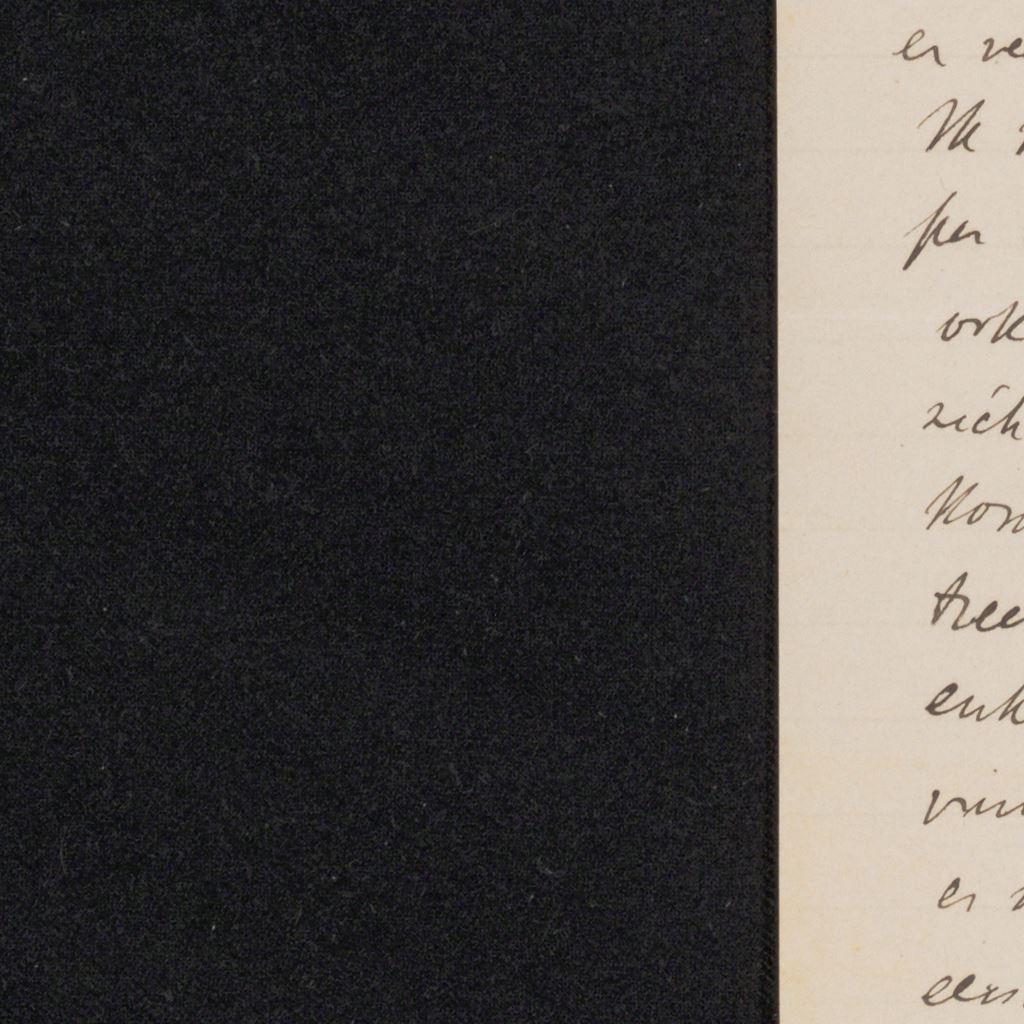 er ve
Ik
per
ork
zich
Kom
twee
enk
vrin
er
eers